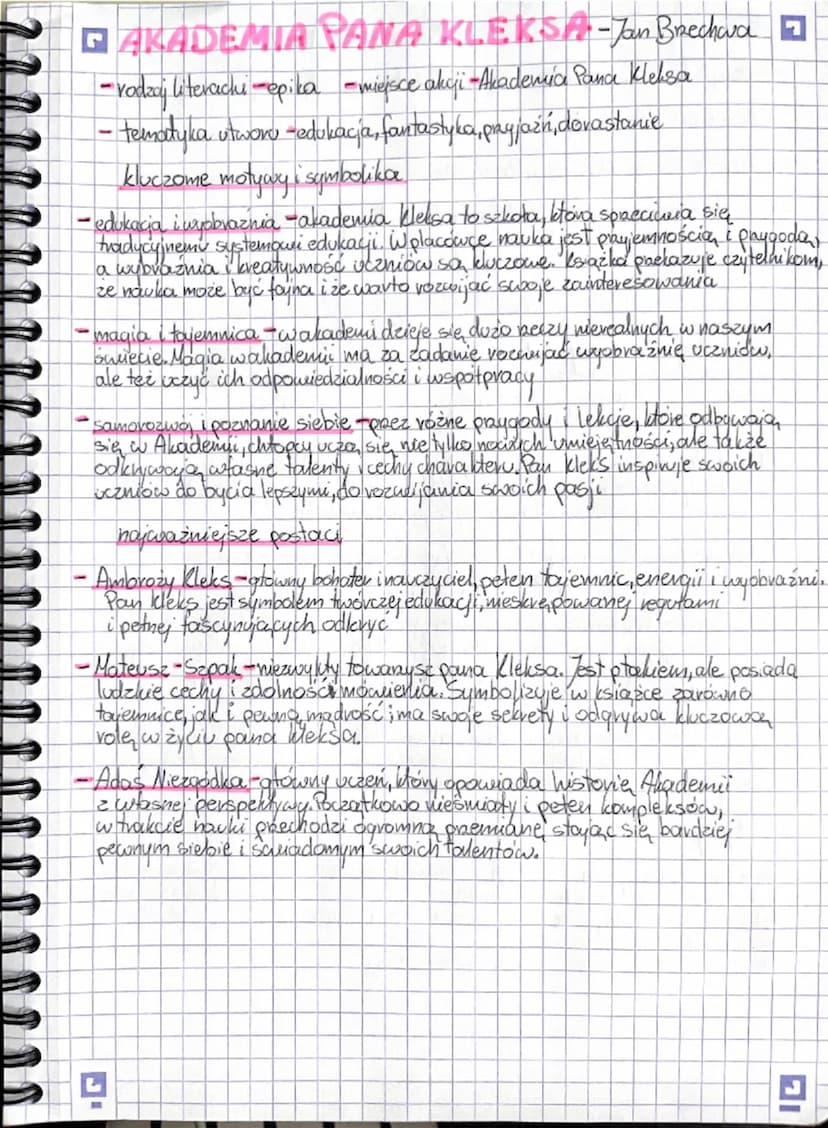 AKADEMIA PANA KLEKSA - Jan Brzechwa
- rodzaj literacki - epika - miejsce akcji - Akademia Pana Kleksa
- tematyka utworu - edukacja, fantastyka, przyjaźń, dorastanie
kluczowe motywy i symbolika
- edukacja i wyobraźnia - akademia Kleksa to szkoła, która sprzeciwia się
tradycyjnemu systemowi edukacji. W placówce nauka jest przyjemnością i przygodą,
a wyobraźnia i kreatywność uczniów są kluczowe. Książka przekazuje czytelnikom,
że nauka może być fajna i że warto rozwijać swoje zainteresowania
- magia i tajemnica - w akademi dzieje się dużo rzeczy nierealnych w naszym
świecie. Magia w akademii ma za zadanie rozwijać wyobraźnię uczniów,
ale też uczyć ich odpowiedzialności i współpracy
- samorozwój i poznanie siebie - przez różne przygody i lekcje, które odbywają
się w Akademii, chłopcy uczą się nie tylko nowych umiejętności, ale także
odkrywają własne talenty i cechy charakteru. Pan Kleks inspiruje swoich
uczniów do bycia lepszymi, do rozwijania swoich pasji
najważniejsze postaci
- Ambroży Kleks - główny bohater i nauczyciel, pełen tajemnic, energii i wyobraźni.
Pan Kleks jest symbolem twórczej edukacji, nieskrępowanej regułami
i pełnej fascynujących odkryć
- Mateusz - Szpak - niezwykły towarzysz pana Kleksa. Jest ptakiem, ale posiada
ludzkie cechy i zdolność mówienia. Symbolizuje w książce zarówno
tajemnice, jak i pewną mądrość; ma swoje sekrety i odgrywa kluczową
rolę w życiu pana Kleksa.
- Adaś Niezgódka - główny uczeń, który opowiada historię Akademii
z własnej perspektywy. Początkowo nieśmiały i pełen kompleksów,
w trakcie nauki przechodzi ogromną przemianę stając się bardziej
pewnym siebie i świadomym swoich talentów.